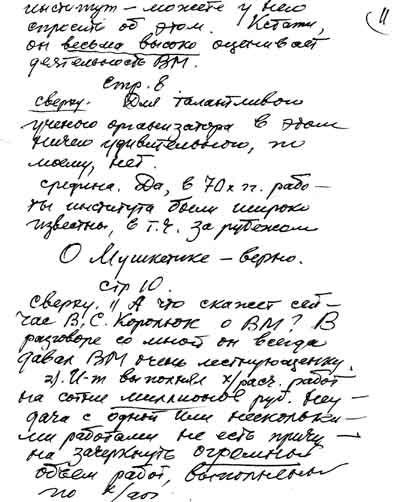 11
институт – можете у него
спросить об этом. Кстати,
он весьма высоко оценивает
деятельность ВМ.
стр. 8
сверху. Для талантливого
ученого организатора в этом
ничего удивительного, по
моему, нет.
средина. Да, в 70х гг. рабо-
ты института были широко
известны, в т.ч. за рубежом
О Мушкетике – верно.
стр 10.
сверху. 1) А что скажет сей-
час В.С. Королюк о ВМ? В
разговоре со мной он всегда
давал ВМ очень лестную оценку.
2). И-т выполнял х/расч. работ
на сотни миллионов руб. Неу-
дача с одной или нескольки-
ми работами не есть причи-
на зачеркнуть огромный
объем работ, выполненный
по х/дог